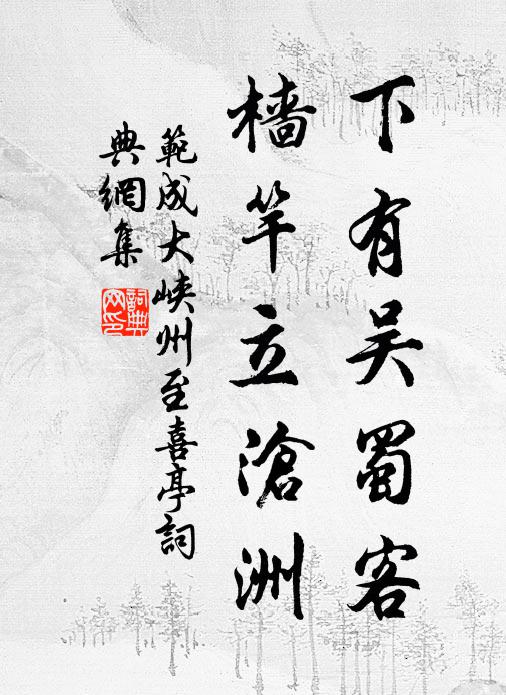 下有吴蜀客
檣竿立滄洲
範成大峽州至喜亭詞
典網集
詞典網印